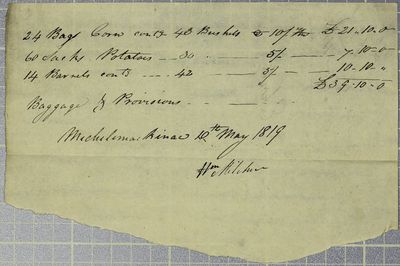 24 Bags Corn contg 43 Bushels @ 10/ £21-10-0
60 Sacks Potatoes - - 30 - - - 5/ - - 7-10-0
14 Barrels contg - - - 42 - - - 5/ - - 10-10-"
£39-10-0
Baggage & Provisions - - - - -
Michilimackinac 10th May 1819
Wm